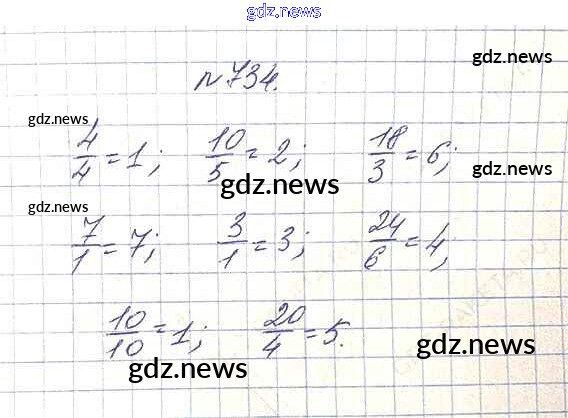 gdz.news
gdz.news
№734.
gdz.news
4/4 = 1; 10/5 = 2; 18/3 = 6;
gdz.news
gdz.news
gdz.news
7/1 = 7; 3/1 = 3; 24/6 = 4;
10/10 = 1; 20/4 = 5.
gdz.news
gdz.news